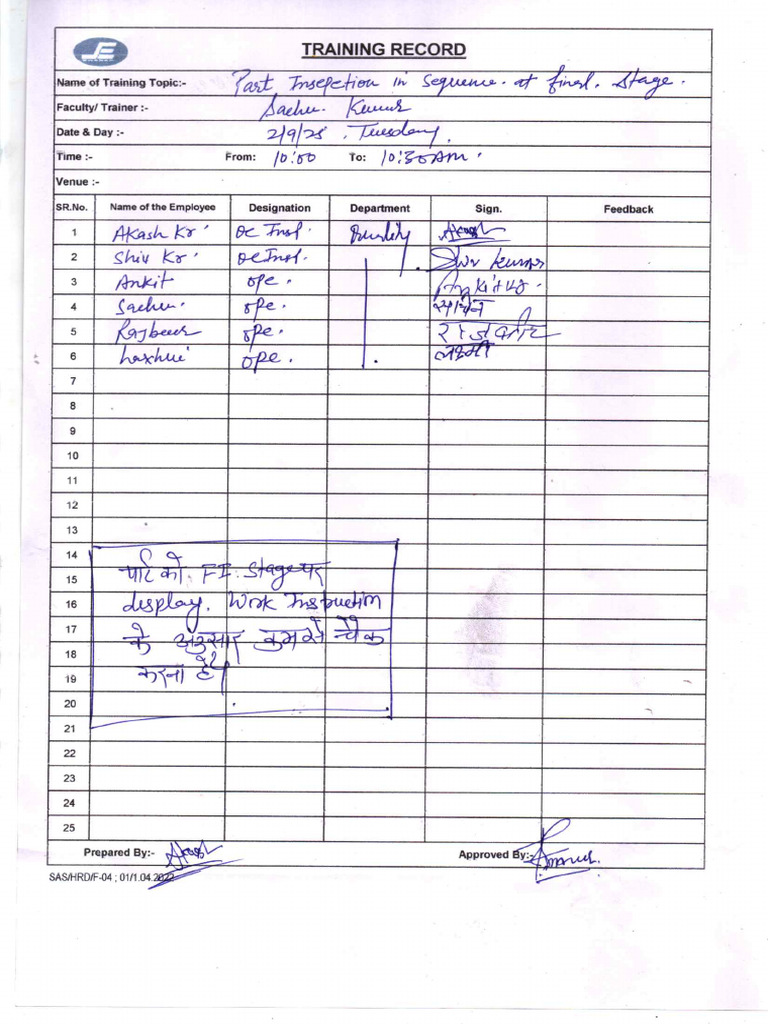 TRAINING RECORD
Name of Training Topic:- Part Insepction in Sequence. at finel. Stage.
Faculty/ Trainer :- Sachin. Kumar
Date & Day :- 2/9/25 . Tuesday.
Time :- From: 10:00 To: 10:30AM.
Venue :-
SR.No. Name of the Employee Designation Department Sign. Feedback
1 Akash Kr. Quality Akash
2 Shiv Kr. Shiv Kumar
3 Ankit ope.
4 Sachin. ope. सचिन
5 Rajbeer ope.
6 Laxmi ope. लक्ष्मी
7
8
9
10
11
12
13
14
15
16
17
18
19
20
21
22
23
24
25
पार्ट को FI. Stage पर
display. Work Instruction
के अनुसार क्रम से चैक
करना है।
Prepared By:- Akash
Approved By:-
SAS/HRD/F-04 ; 01/1.04.2022